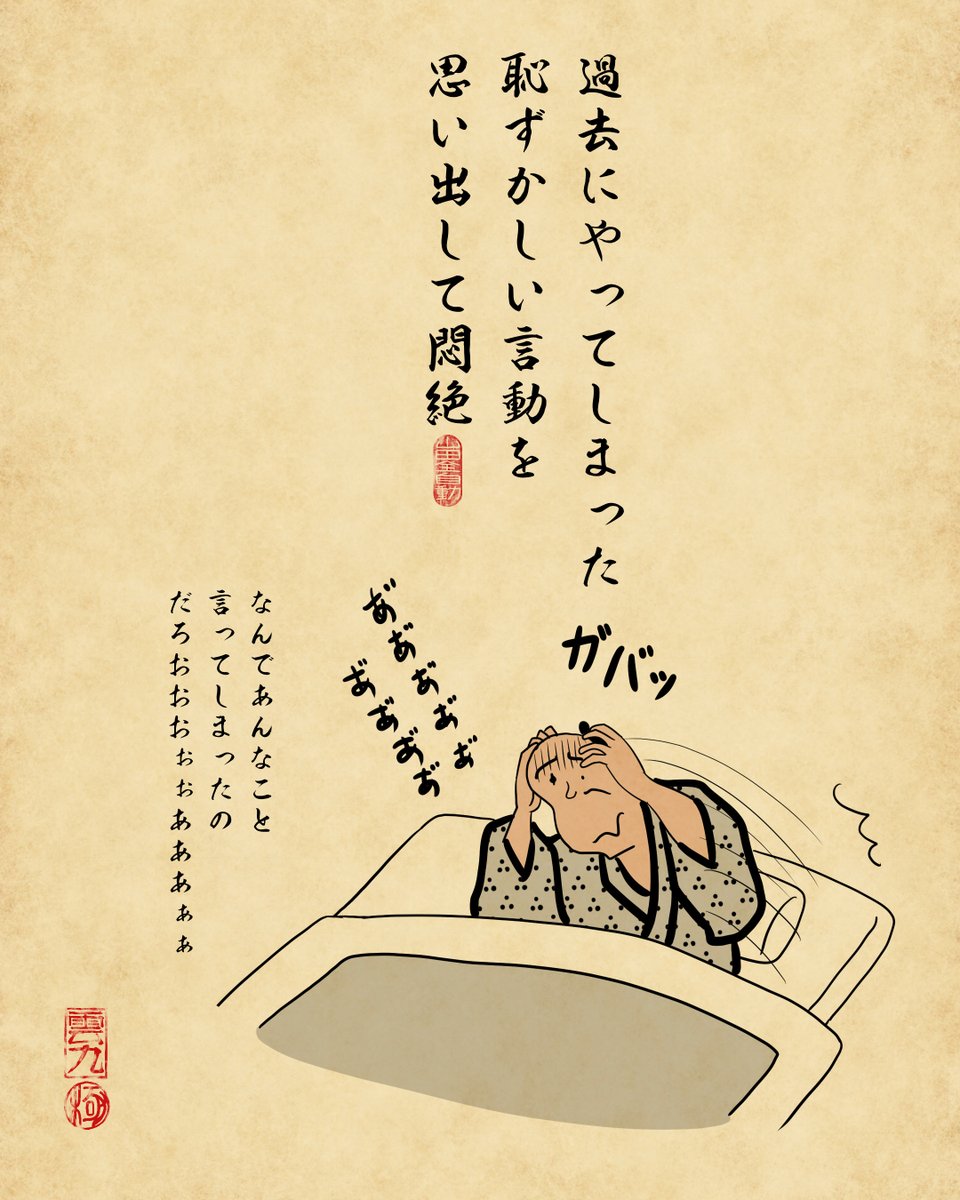 過去にやってしまった
恥ずかしい言動を
思い出して悶絶
ガバッ
あ゛あ゛あ゛あ゛あ゛
あ゛あ゛あ゛あ゛
なんであんなこと
言ってしまったの
だろおおおぉぉあああぁぁ
雲九
極